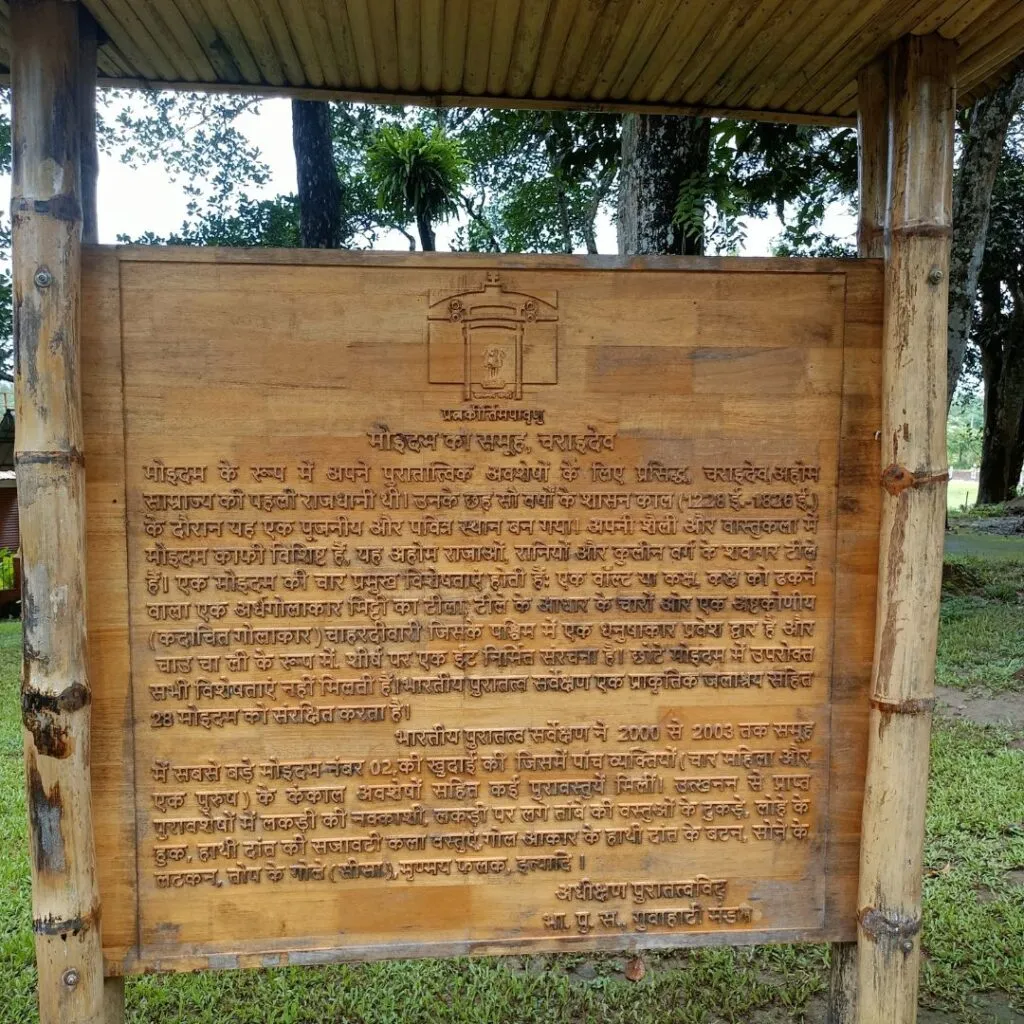 प्रत्नकीर्तिमपावृणु
मोइदम का समूह, चराइदेव
मोइदम के रूप में अपने पुरातात्विक अवशेषों के लिए प्रसिद्ध, चराइदेव,अहोम
साम्राज्य की पहली राजधानी थी। उनके छह सौ वर्षों के शासन काल (1228 ई.-1826 ई.)
के दौरान यह एक पूजनीय और पवित्र स्थान बन गया। अपनी शैली और वास्तुकला में
मोइदम काफी विशिष्ट हैं, यह अहोम राजाओं, रानियों और कुलीन वर्ग के शवागार टीले
हैं। एक मोइदम की चार प्रमुख विशेषताएं होती हैं: एक वॉल्ट या कक्ष, कक्ष को ढकने
वाला एक अर्धगोलाकार मिट्टी का टीला, टीले के आधार के चारों ओर एक अष्टकोणीय
(कदाचित गोलाकार) चाहरदीवारी जिसके पश्चिम में एक धनुषाकार प्रवेश द्वार है और
चाउ चा ली के रूप में, शीर्ष पर एक ईंट निर्मित संरचना है। छोटे मोइदम में उपरोक्त
सभी विशेषताएं नहीं मिलती हैं। भारतीय पुरातत्व सर्वेक्षण एक प्राकृतिक जलाश्रय सहित
28 मोइदम को संरक्षित करता है।
भारतीय पुरातत्व सर्वेक्षण ने 2000 से 2003 तक समूह
में सबसे बड़े मोइदम नंबर 02,की खुदाई की जिसमें पांच व्यक्तियों (चार महिला और
एक पुरुष) के कंकाल अवशेषों सहित कई पुरावस्तुयें मिलीं। उत्खनन से प्राप्त
पुरावशेषों में लकड़ी की नक्काशी, लकड़ी पर लगे तांबे की वस्तुओं के टुकड़े, लोहे के
हुक, हाथी दांत की सजावटी कला वस्तुएं,गोल आकार के हाथी दांत के बटन, सोने के
लटकन, तोप के गोले (सीसा), मृण्मय फलक, इत्यादि ।
अधीक्षण पुरातत्वविद्
भा. पु. स., गुवाहाटी मंडल